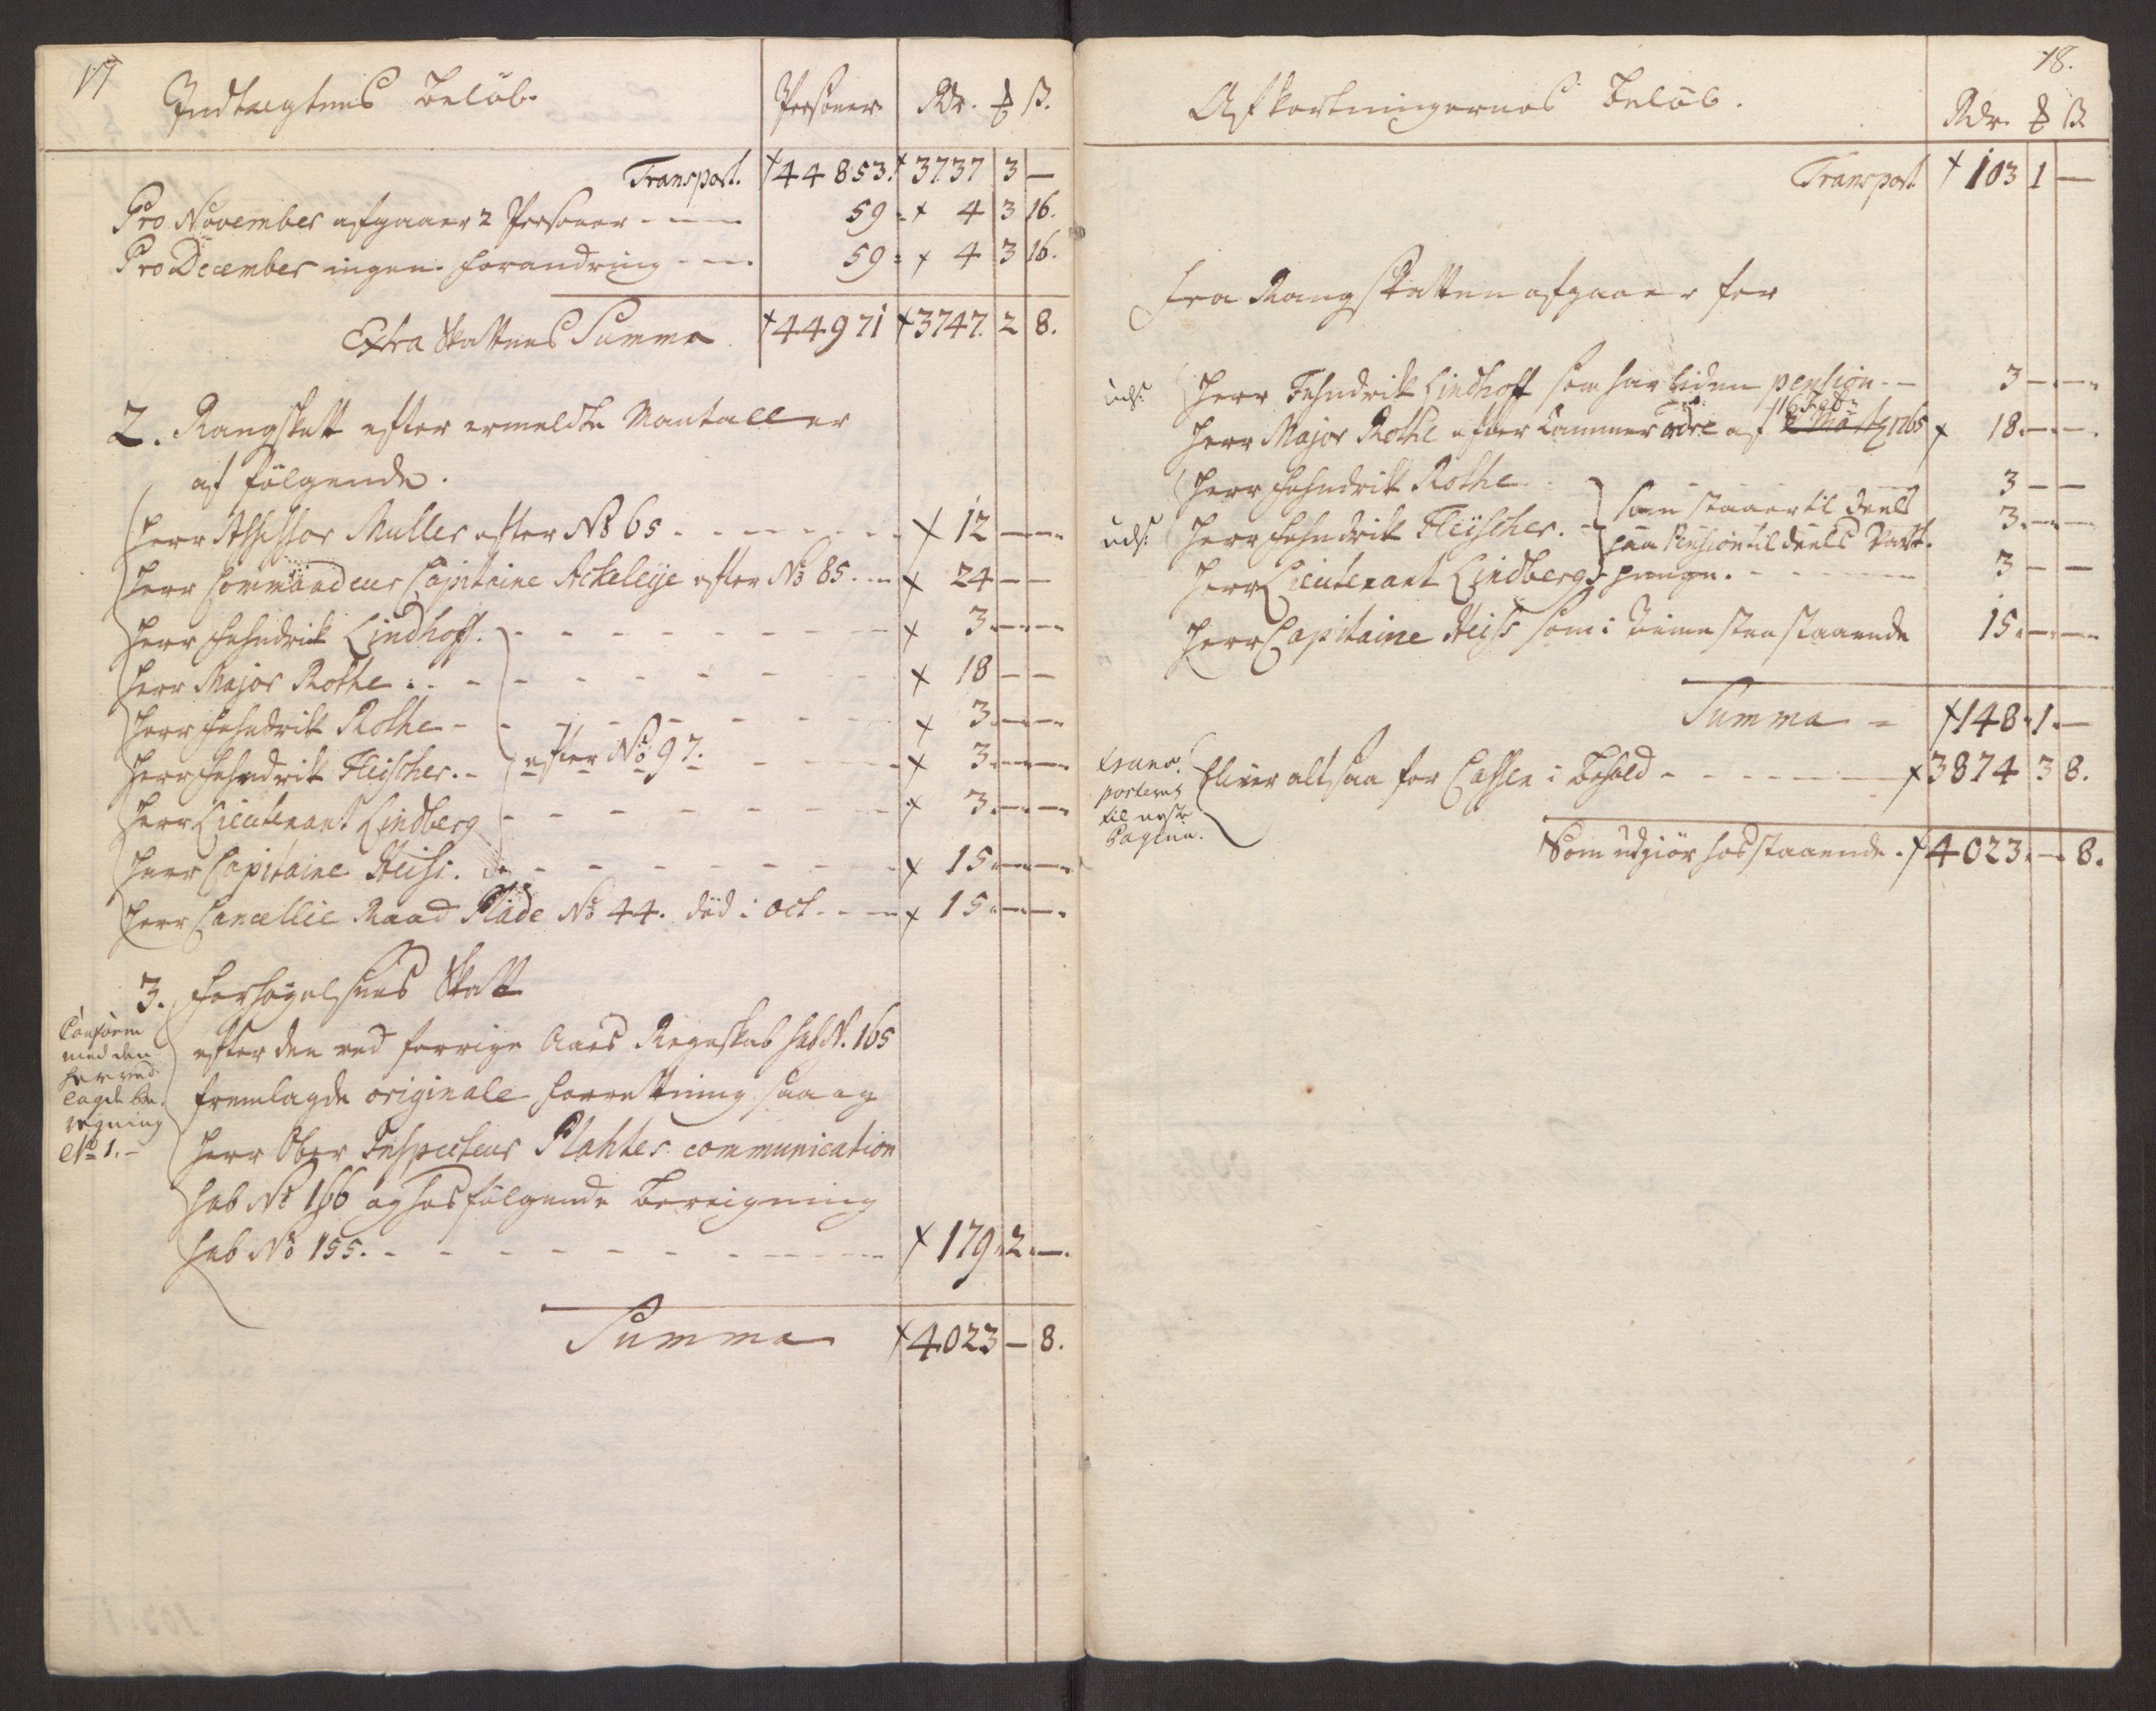 17
Indtægtens Beløb.
Personer Rdr. ℔ ß.
Transport. 44853. 3737 3 —
Pro November afgaaer 2 Personer - - - 59 = 4 3 16.
Pro December ingen forandring - - - 59 = 4 3 16.
Extra Skattens Summa 44971 3747. 2 8.
2. Rangskatt efter ermeldte Mantaller
af følgende.
Herr Assessor Muller efter No 65 - - - 12 — —
Herr Commandeur Capitaine Ackeleije efter No 85. - - 24 — —
Herr Fehndrik Lindhoff. - - - 3 — —
Herr Major Rothe. - - - 18 — —
Herr Fehndrik Rothe - - - 3 — —
Herr Fehndrik Fleischer. - efter No 97. - - - 3 — —
Herr Lieutenant Lindberg - - - 3 — —
Herr Capitaine Heiss. - - - 15 — —
Herr Cancellie Raad Plade No 44. død i Oct. - - - 15 — —
3. Forhøyelsens Skatt
efter den ved forrige Aars Regnskab sub N. 165
fremlagde originale Forretning saa og
Herr Ober Inspecteur Plahtes communication
sub No 166 og hosfølgende Bereigning
sub No 155. - - - 179. 2. —
Conform
med den
herved
lagde be-
regning
No 1. -
Summa 4023 — 8.
18.
Afkortningernes Beløb.
Rdr. ℔ ß
Transport 103 1 —
Fra Rangskatten afgaaer for
uds. Herr Fehndrik Lindhoff som har liden pension - - 3 — —
16 Febr:
Herr Major Rothe efter Cammer ordre af 2 Martz 1765 18. — —
Herr Fehndrik Rothe 3 — —
uds. Herr Fehndrik Fleischer. - som staaer til deels 3. — —
paa Pension til deels Vart-
Herr Lieutenant Lindberg penge. - - - 3 — —
Herr Capitaine Heiss som i Tienesten staaende 15. — —
Summa - 148. 1. —
trans-
porteres
til neste
Pagina.
Bliver altsaa for Cassen i Behold - - - 3874 3 8.
Som udgiør hosstaaende. 4023. — 8.